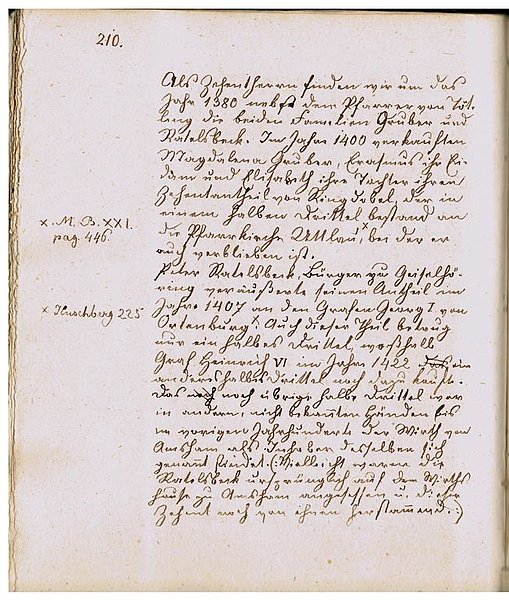 210.
Als Zehentherrn finden wir um das
Jahr 1380 nebst dem Pfarrer von Töt-
ling die beiden Familien Gruber und
Ratelsbeck. Im Jahre 1400 verkauften
Magdalena Gruber, Erasmus ihr Ei-
dam und Elisabeth ihre Tochter ihren
Zehentantheil von Ringdobel, der in
einem halben Drittel bestand an
die Pfarrkirche Uttlau x, bei der er
auch verblieben ist.
x. M. B. XXI.
pag. 446.
Peter Ratelsbeck, Bürger zu Geiselhö-
ring veräußerte seinen Antheil im
Jahre 1407 an den Grafen Georg I. von
Ortenburg x. Auch dieser Theil betrug
x Huschberg 225
nur ein halbes Drittel, weßhalb
Graf Heinrich VI im Jahre 1422 ein
anderthalbes Drittel noch dazu kaufte.
Das noch übrige halbe Drittel war
in andern, nicht bekannten Händen bis
im vorigen Jahrhundert der Wirth von
Amsham als Inhaber desselben sich
genannt findet. (: Vielleicht waren die
Ratelsbeck ursprünglich auf dem Wirths
hause zu Amsham angesessen u. dieser
Zehent noch von ihnen herstammend. :)